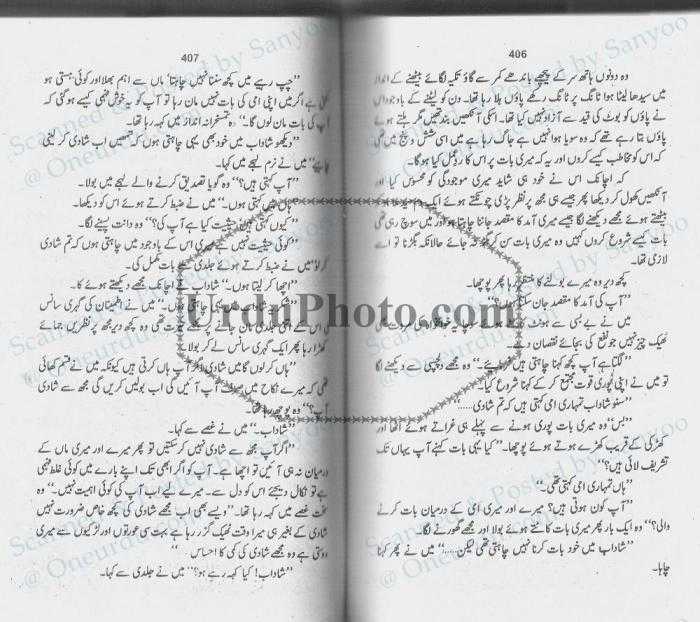 406
وہ دونوں ہاتھ سر کے پیچھے باندھے کمر سے گاؤ تکیہ لگائے بیٹھنے کے انداز
میں سیدھا لیٹا ہوا ٹانگ پر ٹانگ رکھے پاؤں ہلا رہا تھا۔ دن کو لیٹنے کے باوجود اس
نے پاؤں کو بوٹ کی قید سے آزاد نہیں کیا تھا۔ اسکی آنکھیں بند تھیں مگر ہلتے ہوئے
پاؤں بتا رہے تھے کہ وہ سویا ہوا نہیں ہے جاگ رہا ہے میں اسی شش و پنج میں تھی
کہ اس کو مخاطب کیسے کروں اور یہ کہ میری بات پر اس کا ردعمل کیا ہوگا۔
کہ اچانک اس نے خود ہی شاید میری موجودگی کو محسوس کیا اور
آنکھیں کھول کر دیکھا پھر جیسے ہی مجھ پر نظر پڑی چونکتے ہوئے ایک دم سیدھا
بیٹھتے ہوئے مجھے دیکھنے لگا جیسے میری آمد کا مقصد جاننا چاہتا ہو اور میں سوچ رہی تھی
بات کیسے شروع کروں کہیں وہ میری بات سن کر بگڑ نہ جائے حالانکہ بگڑنا تو اسے
لازمی تھا۔
کچھ دیر وہ میرے بولنے کا منتظر رہا پھر پوچھا۔
"آپ کی آمد کا مقصد جان سکتا ہوں؟"
میں نے بے بسی سے ہونٹ
ٹھیک چیز نہیں جو نفع کی بجائے نقصان دے۔
"لگتا ہے آپ کچھ کہنا چاہتی ہیں فرمائیے۔" وہ مجھے دلچسپی سے دیکھنے لگا
تو میں نے اپنی پوری قوت مجتمع کر کے کہنا شروع کیا۔
"سنو شاداب تمہاری امی کہتی ہیں کہ تم شادی......"
"بس" وہ میری بات پوری ہونے سے پہلے ہی غراتے ہوئے اٹھا اور
کھڑکی کے قریب کھڑے ہوتے ہوئے پوچھا۔ "کیا یہی بات کہنے آپ یہاں تک
تشریف لائی ہیں؟"
"ہاں تمہاری امی کہتی تھی۔"
"آپ کون ہوتی ہیں؟ میرے اور میری امی کے درمیان بات کرنے
والی؟" وہ ایک بار پھر میری بات کاٹتے ہوئے بولا اور مجھے گھورنے لگا۔
"شاداب میں خود بات کرنا نہیں چاہتی تھی لیکن......" میں نے پھر کہنا
چاہا۔
407
"چپ رہیے میں کچھ سننا نہیں چاہتا' ماں سے اہم بھلا اور کوئی ہستی ہو
ہے اگر میں اپنی امی کی بات نہیں مان رہا تو آپ کو یہ خوش فہمی کیسے ہو گئی کہ
آپ کی بات مان لوں گا۔" وہ تمسخرانہ انداز میں کہہ رہا تھا۔
"دیکھو شاداب میں خود بھی یہی چاہتی ہوں کہ تمھیں اب شادی کر لینی
چاہیے" میں نے نرم لہجے میں کہا۔
"آپ کہتی ہیں؟" وہ گویا تصدیق کرنے والے لہجے میں بولا۔
"ہاں میں کہتی ہوں۔" میں نے ضبط کرتے ہوئے اس کو دیکھا۔
"کیوں کہتی ہیں؟ حیثیت کیا ہے آپ کی؟" وہ دانت پیسنے لگا۔
"کوئی حیثیت نہیں ہے میری اس کے باوجود میں چاہتی ہوں کہ تم شادی
کر لو" میں نے ضبط کرتے ہوئے جلدی سے بات مکمل کی۔
"اچھا کر لیتا ہوں۔" شاداب نے اچانک مجھے دیکھتے ہوئے کہا۔
"شکریہ شاداب میں یہی چاہتی تھی۔" میں نے اطمینان کی گہری سانس
کھڑا رہا پھر ایک گہری سانس لے کر بولا۔
"ہاں کر لوں گا میں شادی مگر آپ ہاں کرتی ہیں کیونکہ میں نے قسم کھائی
تھی کہ میرے نکاح میں صرف آپ آئیں گی اب بولیں کریں گی مجھ سے شادی
آپ؟" وہ پوچھ رہا تھا۔
"شاداب۔" میں نے غصے سے کہا۔
"اگر آپ مجھ سے شادی نہیں کر سکتیں تو پھر میرے اور میری ماں کے
درمیان نہ ہی آئیں تو اچھا ہے۔ آپ کو اگر ابھی تک اپنے بارے میں کوئی غلط فہمی
ہے تو نکال دیجئے اس کو دل سے۔ میرے لیے اب آپ کی کوئی اہمیت نہیں۔" وہ
سخت غصے میں کہہ رہا تھا۔ "ویسے بھی اب مجھے شادی کی کچھ خاص ضرورت نہیں
شادی کے بغیر ہی میرا وقت ٹھیک گزر رہا ہے بہت سی عورتوں اور لڑکیوں سے میری
دوستی ہے وہ مجھے شادی کی کمی کا احساس
"شاداب! کیا کہہ رہے ہو؟" میں نے جلدی سے کہا۔
UrduPhoto.com
Scanned & Posted by Sanyoo
@ Oneurdu.com